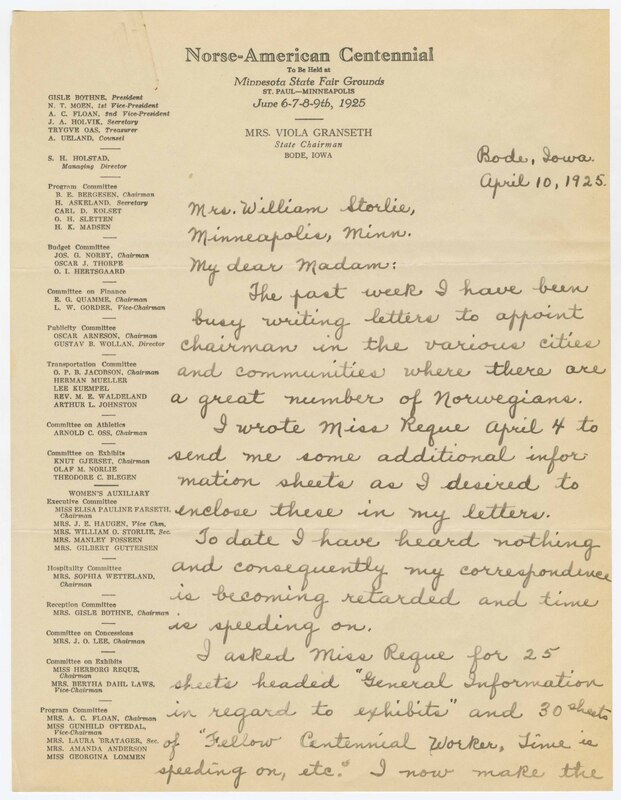 Norse-American Centennial
To Be Held at
Minnesota State Fair Grounds
ST. PAUL—MINNEAPOLIS
June 6-7-8-9th, 1925
MRS. VIOLA GRANSETH
State Chairman
BODE, IOWA
GISLE BOTHNE, President
N. T. MOEN, 1st Vice-President
A. C. FLOAN, 2nd Vice-President
J. A. HOLVIK, Secretary
TRYGVE OAS, Treasurer
A. UELAND, Counsel
S. H. HOLSTAD,
Managing Director
Program Committee
B. E. BERGESEN, Chairman
H. ASKELAND, Secretary
CARL D. KOLSET
O. H. SLETTEN
H. K. MADSEN
Budget Committee
JOS. G. NORBY, Chairman
OSCAR J. THORPE
O. I. HERTSGAARD
Committee on Finance
E. G. QUAMME, Chairman
L. W. GORDER, Vice-Chairman
Publicity Committee
OSCAR ARNESON, Chairman
GUSTAV B. WOLLAN, Director
Transportation Committee
O. P. B. JACOBSON, Chairman
HERMAN MUELLER
LEE KUEMPEL
REV. M. E. WALDELAND
ARTHUR L. JOHNSTON
Committee on Athletics
ARNOLD C. OSS, Chairman
Committee on Exhibits
KNUT GJERSET, Chairman
OLAF M. NORLIE
THEODORE C. BLEGEN
WOMEN'S AUXILIARY
Executive Committee
MISS ELISA PAULINE FARSETH,
Chairman
MRS. J. E. HAUGEN, Vice Chm,
MRS. WILLIAM O. STORLIE, Sec.
MRS. MANLEY FOSSEEN
MRS. GILBERT GUTTERSEN
Hospitality Committee
MRS. SOPHIA WETTELAND,
Chairman
Reception Committee
MRS. GISLE BOTHNE, Chairman
Committee on Concessions
MRS. J. O. LEE, Chairman
Committee on Exhibits
MISS HERBORG REQUE,
Chairman
MRS. BERTHA DAHL LAWS,
Vice-Chairman
Program Committee
MRS. A. C. FLOAN, Chairman
MISS GUNHILD OFTEDAL,
Vice-Chairman
MRS. LAURA BRATAGER, Sec.
MRS. AMANDA ANDERSON
MISS GEORGINA LOMMEN
Bode, Iowa.
April 10, 1925.
Mrs. William Storlie,
Minneapolis, Minn.
My dear Madam:
The past week I have been
busy writing letters to appoint
chairman in the various cities
and communities where there are
a great number of Norwegians.
I wrote Miss Reque April 4 to
send me some additional infor
mation sheets as I desired to
enclose these in my letters.
To date I have heard nothing
and consequently my correspondence
is becoming retarded and time
is speeding on.
I asked Miss Reque for 25
sheets headed "General Information
in regard to exhibits" and 30 sheets
of "Fellow Centennial Worker, Time is
speeding on, etc." I now make the